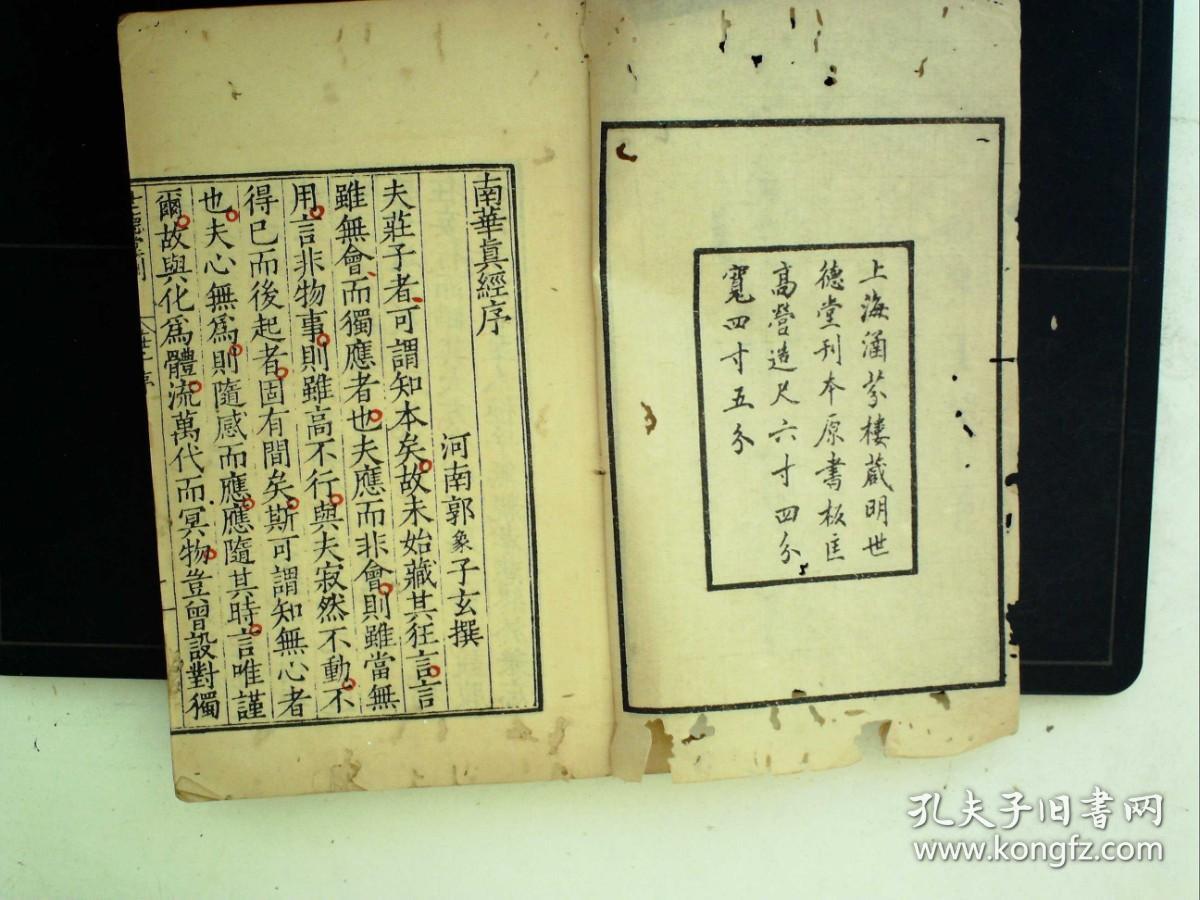 上海涵芬樓藏明世
德堂刊本原書板匡
高營造尺六寸四分
寬四寸五分
南華眞經序
河南郭象子玄撰
夫莊子者可謂知本矣故未始藏其狂言言
雖無會而獨應者也夫應而非會則雖當無
用言非物事則雖高不行與夫寂然不動不
得已而後起者固有間矣斯可謂知無心者
也夫心無爲則隨感而應應隨其時言唯謹
爾故與化爲體流萬代而冥物豈曾設對獨
孔夫子旧书网
www.kongfz.com